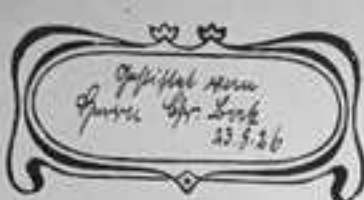 Gestiftet von
Herrn Chr Beck
23.9.26